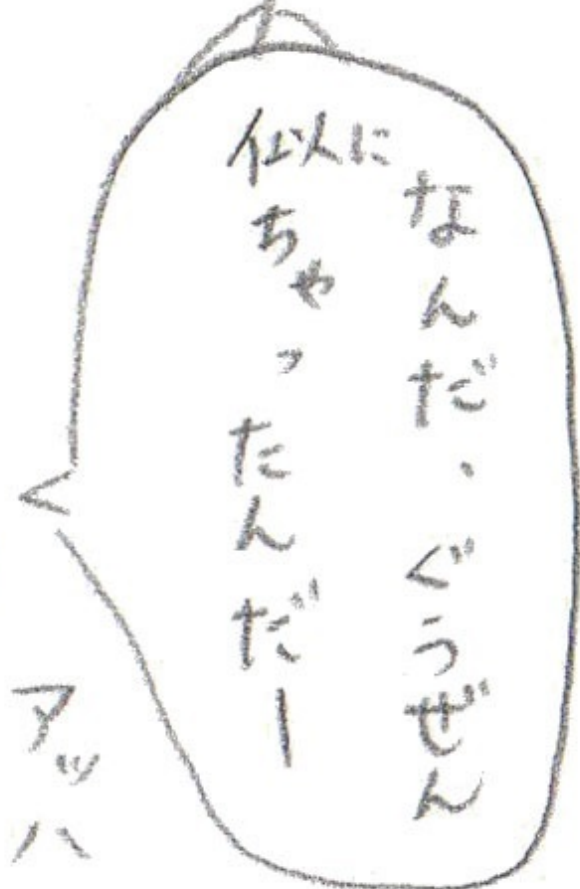 なんだ、ぐうぜん
似ちゃったんだー
に
アッハ